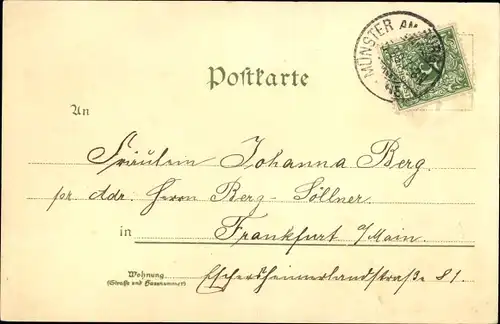 MÜNSTER AM
Postkarte
An
Fräulein Johanna Berg.
per Adr. Herrn Berg-Söllner.
in Frankfurt a/Main.
Wohnung Eschersheimerlandstraße 81.
(Straße und Hausnummer)